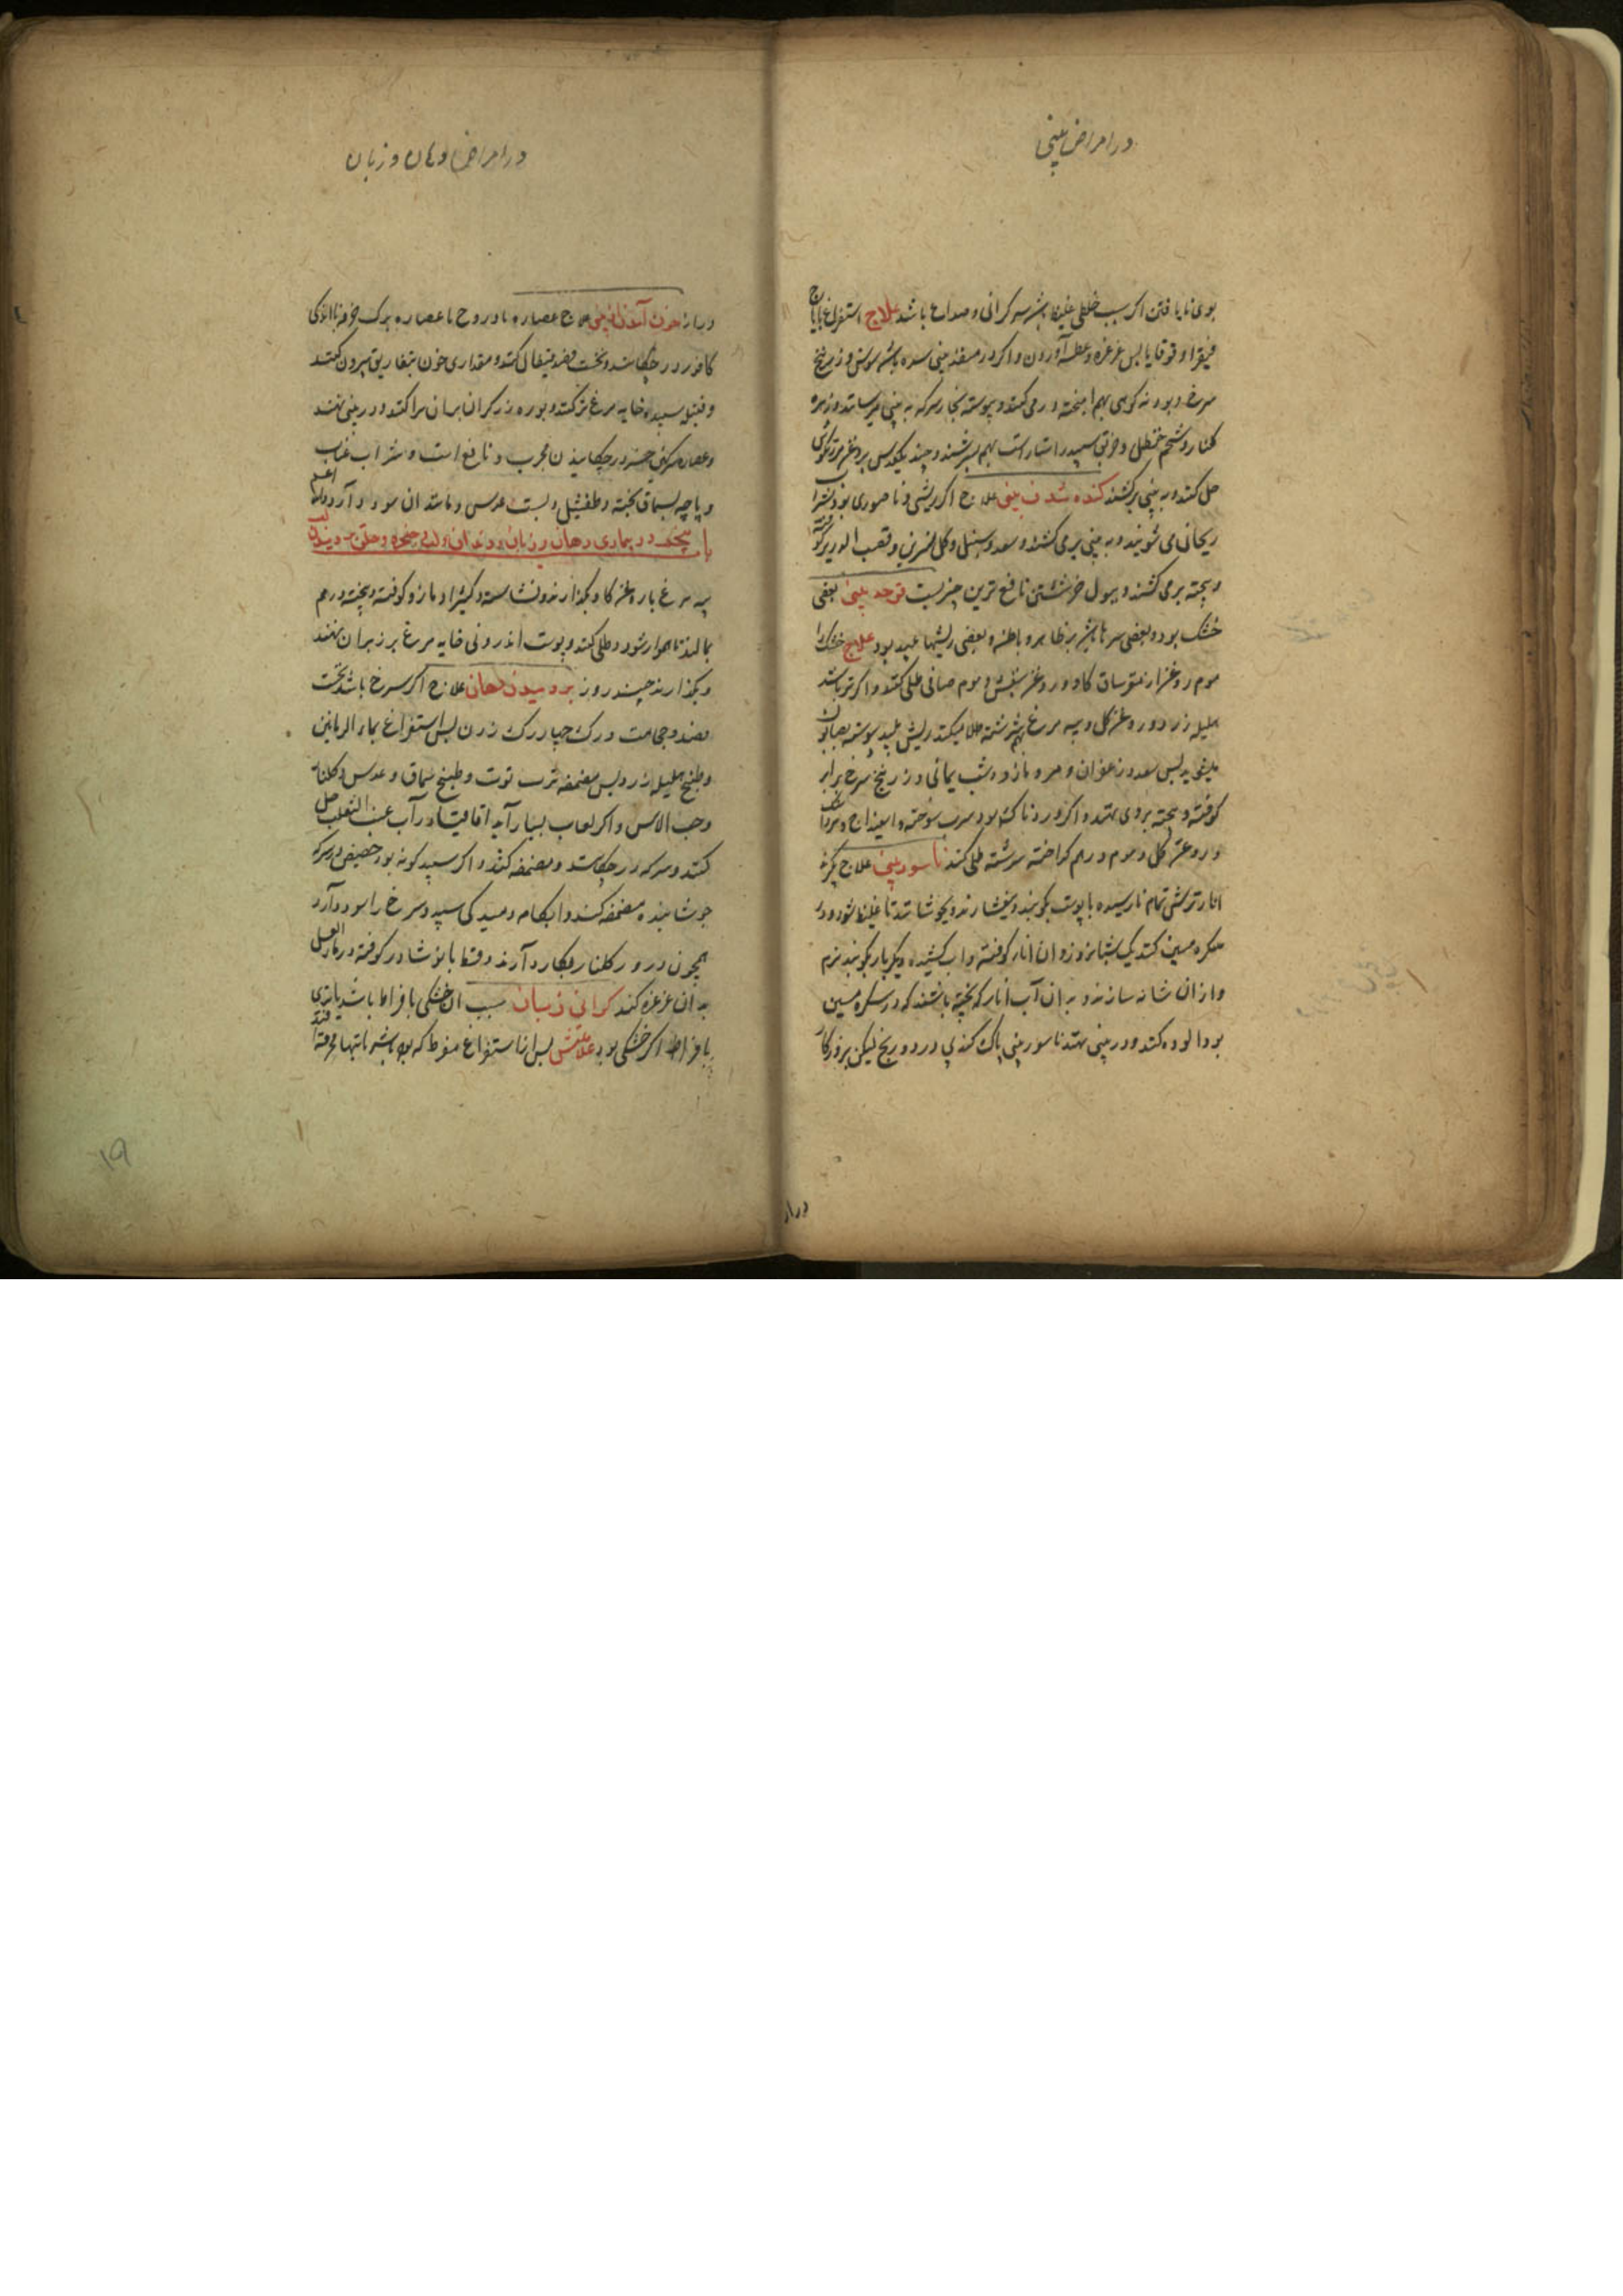 در امراض بینی
بوی نایافتن اگر سبب خلطی غلیظ باشد سر کرانی و صداع باشد علاج استفراغ بایارج
فیقرا و قوقایا پس غرغره و عطسه آوردن و اگر در مصفه بینی سده باشد و زرنیخ
سرخ و بودنه کوهی بهم آمیخته در می کنند و پیوسته بخار سرکه به بینی میرسانند و زهره
کلنک و شحم حنظل و خربق سپید راستاراست بهم بسرشند و چند یکعدس بروغن مرزنکوش
حل کنند و به بینی برکشند کنده شدن بینی علاج اگر ریشی و ناصوری بود بشراب
ریحانی می شویند و به بینی بر می کشند و سعد و سنبل و کل نسرین و قصب الذریره کوفته
و بیخته بر می کشند و ببول خر شستن نافع ترین چیزیست قرحه بینی بعضی
خشک بود و بعضی تر یا بشره بر ظاهر و باطن و بعضی ریشها پلید بود علاج خشک را
موم روغن از مغز ساق کاو و روغن بنفشه و موم صافی طلی کنند و اگر تر باشد
هلیله زرد و روغن کل و پیه مرغ بهم سرشته طلا میکنند ریش پلید پیوسته بصابون
می شوید پس سعد و زعفران و مر و مازو و شب یمانی و زرنیخ سرخ برابر
کوفته و بیخته بر وی نهند و اگر دردناک بود سرب سوخته و اسفیداج و مرداسنک
و روغن کل و موم در هم کداخته سرشته طلی کنند ناسور بینی علاج بکیرند
انار ترش تمام نارسیده با پوست بکوبند و بیفشارند و بجوشانند تا غلیظ شود و در
سکره مسین کنند یک شبانروز و آن انار کوفته و آب کشیده دیکر بار بکوبند نرم
و از آن شانه سازند و به آن آب انار که پخته باشند که در سکره مسین
بود آلوده کنند و در بینی نهند ناسور بینی پاک کند بی درد و رنج لیکن بروزکار
دراز
در امراض دهان و زبان
دراز خون آمدن از بینی علاج عصاره بادروج یا عصاره برک خرفه با اندکی
کافور در چکانند و نخست فصد قیفال کنند و مقداری خون بتفاریق بیرون کنند
و فتیله بسپیده خایه مرغ تر کنند و بوره زرکران بران پراکنند و در بینی نهند
و عصاره سرکین خر در چکانیدن مجرب و نافع است و شراب عناب
و پاچه بسماق پخته و طفشیل و پست عدس و مانند آن سود دارد والله اعلم
باب پنجم در بیماری دهان و زبان و دندان و لب و حنجره و حلق
پیه مرغ یا روغن کاو بکدازند و نشاسته و کثیرا و مازو کوفته و بیخته در هم
بمالند تا هموار شود و طلی کنند و پوست اندرونی خایه مرغ بر زبر آن نهند
و بکذارند چند روز بردمیدن دهان علاج اگر سرخ باشد نخست
فصد و حجامت و رک چهار رک زدن پس استفراغ بماء الرمانین
و طبیخ هلیله زرد پس مضمضه برب توت و طبیخ سماق و عدس و کلنار
و حب الآس و اگر لعاب بسیار آید اقاقیا در آب عنب الثعلب حل
کنند و سرکه در چکانند و مضمضه کنند و اگر سپید کونه بود در سرکه
جوشانیده مضمضه کنند و آبکامه و میدکی سپید و سرخ را سود دارد
همچون درور کلنار بکار دارند و قسط با نوشادر کوفته در ماء العسل
به آن غرغره کنند کرانی زبان سبب آن خشکی بافراط باشد یا تری
بافراط اگر خشکی بود علامتش پس از استفراغ مفرط که بوده باشد یا تبها محرقه
۱۹